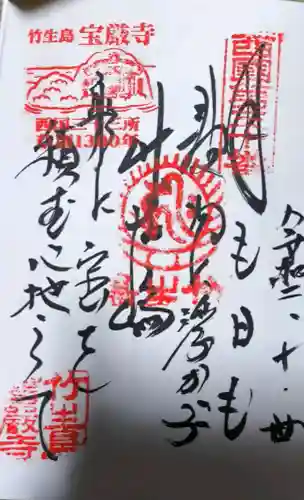 竹生島 宝厳寺
西国三十三所
草創1300年
月も日も
波間に浮かぶ
竹生島
船に宝を
積む心地して
令和二・十・廿
竹生島
宝厳寺